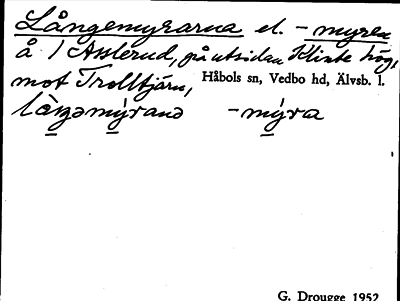 Långemyrarna el. -myren
å 1 Asslerud, på utsidan Klinte hög,
mot Trolltjärn, Håbols sn, Vedbo hd, Älvsb. l.
-mýra
G. Drougge 1952